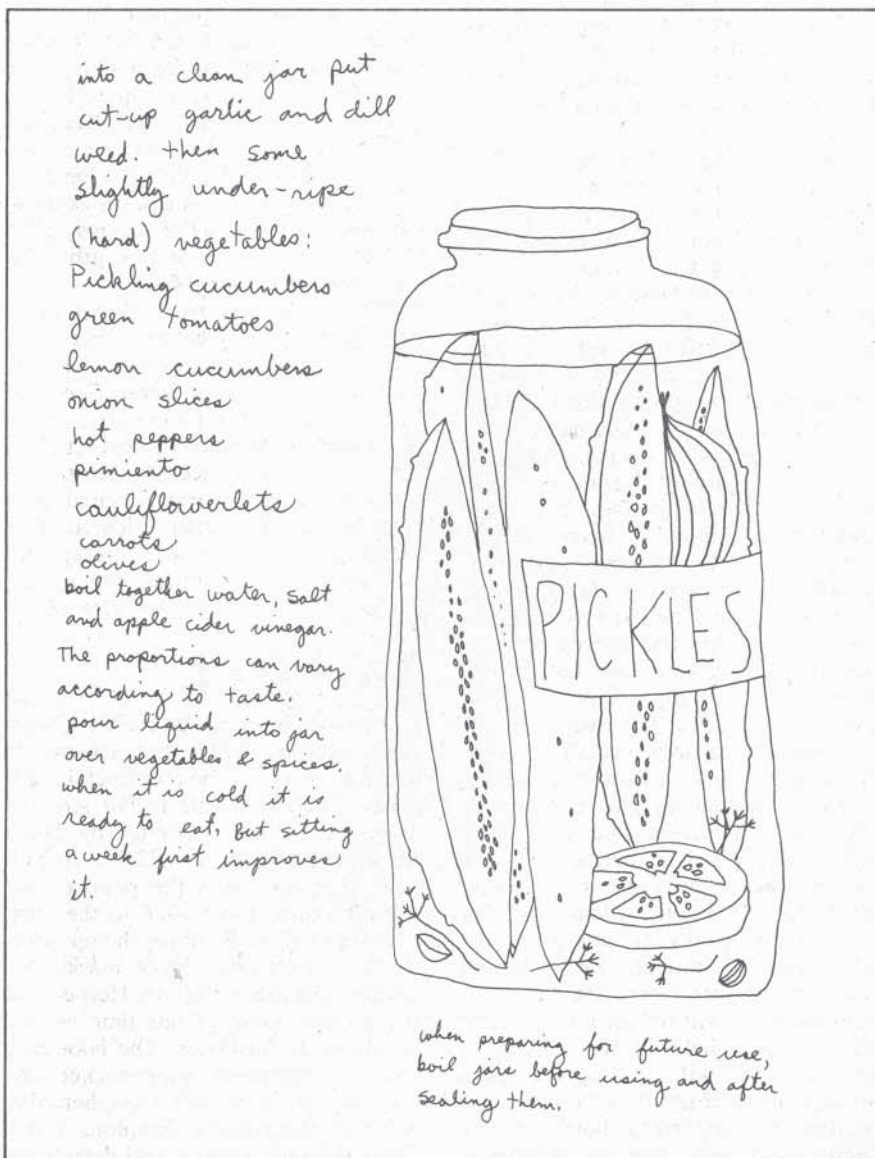 into a clean jar put
cut-up garlic and dill
weed. then some
slightly under-ripe
(hard) vegetables:
Pickling cucumbers
green tomatoes
lemon cucumbers
onion slices
hot peppers
pimiento
cauliflowerlets
carrots
olives
boil together water, salt
and apple cider vinegar.
The proportions can vary
according to taste.
pour liquid into jar
over vegetables & spices.
when it is cold it is
ready to eat, But sitting
a week first improves
it
PICKLES
when preparing for future use,
boil jars before using and after
sealing them.